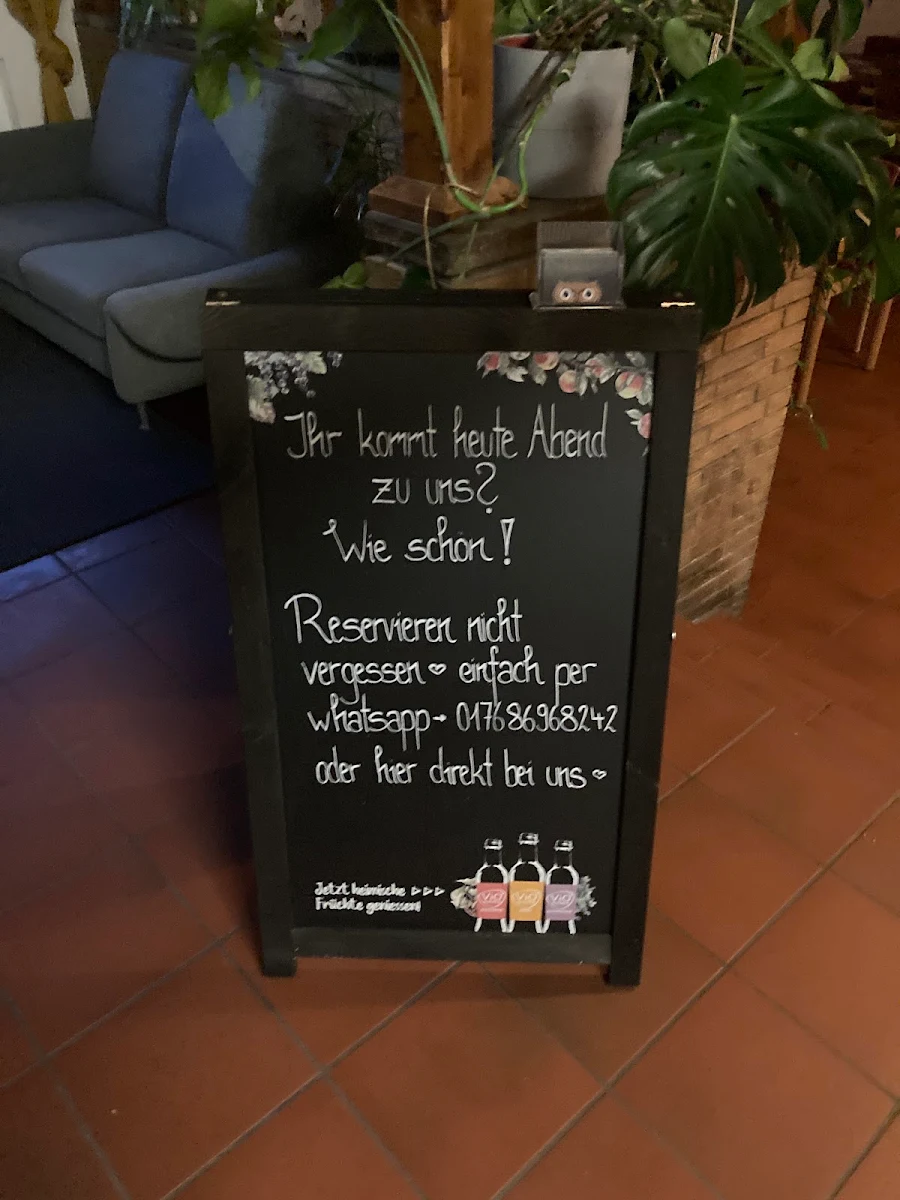 Ihr kommt heute Abend
zu uns?
Wie schön!
Reservieren nicht
vergessen ♡ einfach per
whatsapp → 017686968242
oder hier direkt bei uns ♡
Jetzt heimische ▷▷▷
Früchte geniessen!
ViO ViO ViO